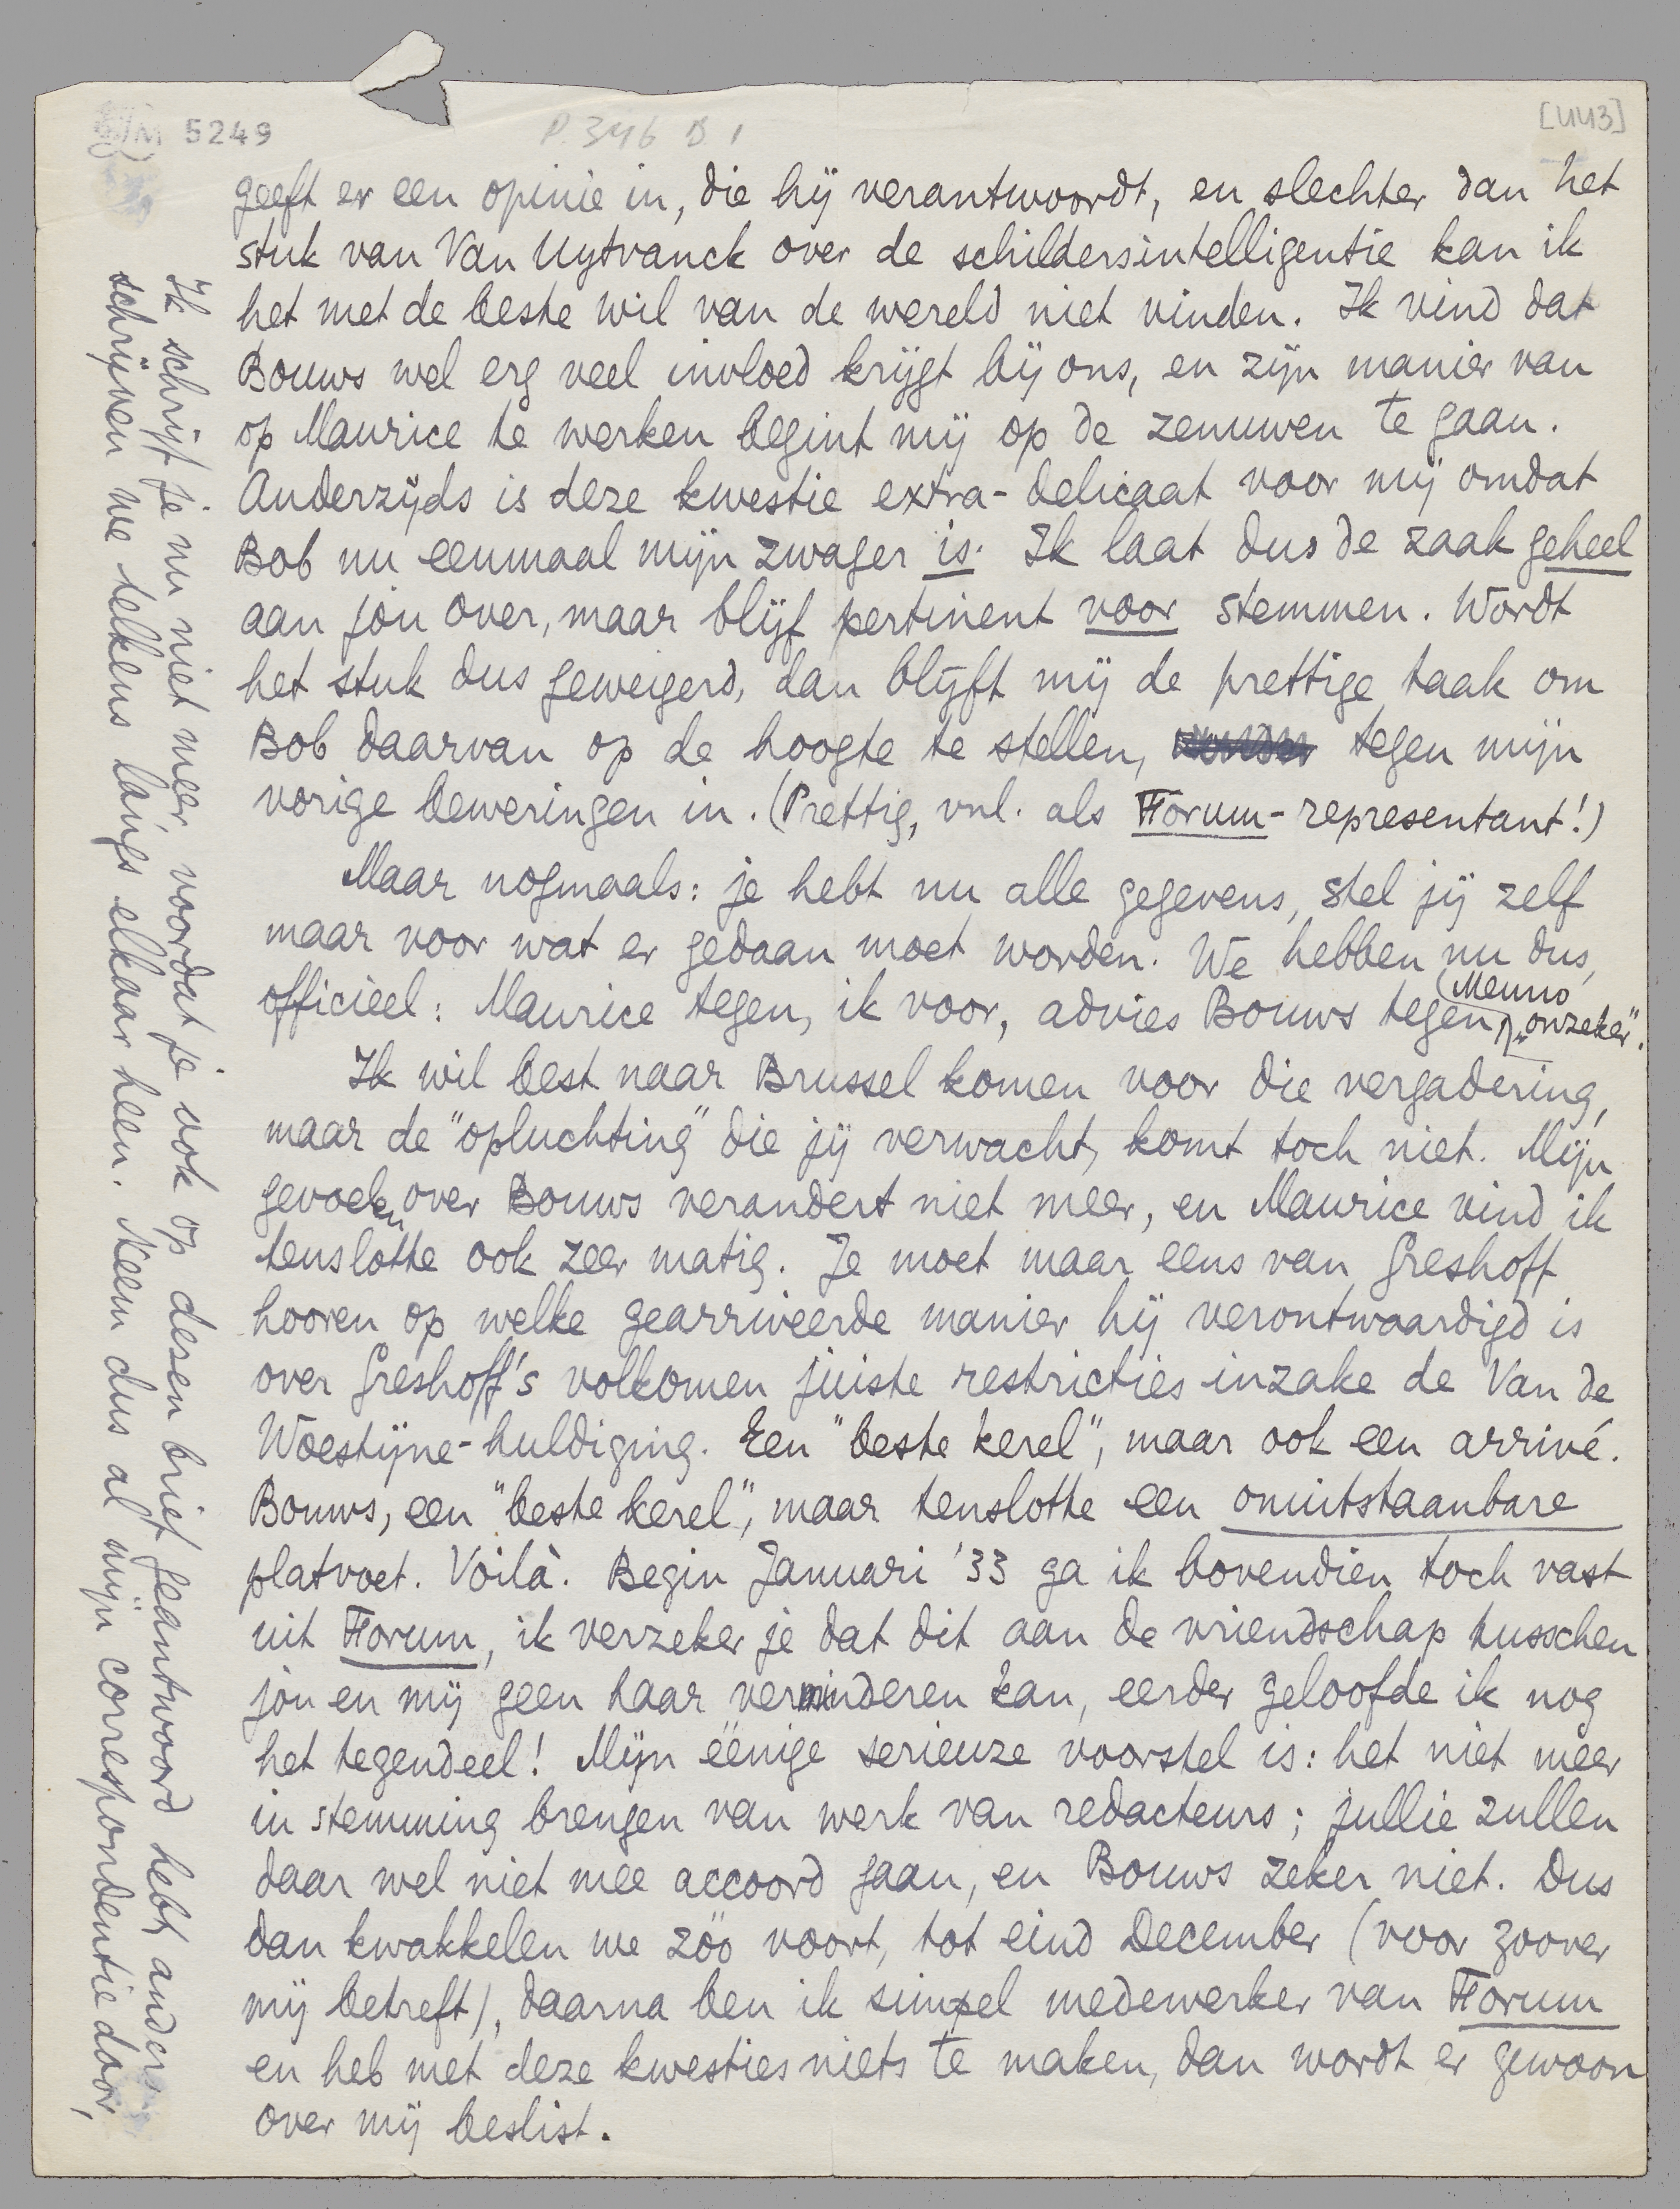 5249
P. 346 D 1
[443]
geeft er een opinie in, die hij verantwoordt, en slechter dan het
stuk van Van Uytvanck over de schildersintelligentie kan ik
het met de beste wil van de wereld niet vinden. Ik vind dat
Bouws wel erg veel invloed krijgt bij ons, en zijn manier van
op Maurice te werken begint mij op de zenuwen te gaan.
Anderzijds is deze kwestie extra-delicaat voor mij omdat
Bob nu eenmaal mijn zwager is. Ik laat dus de zaak geheel
aan jou over, maar blijf pertinent voor stemmen. Wordt
het stuk dus geweigerd, dan blijft mij de prettige taak om
Bob daarvan op de hoogte te stellen, tegen mijn
vorige beweringen in. (Prettig, vnl. als Forum-representant!)
Maar nogmaals: je hebt nu alle gegevens, stel jij zelf
maar voor wat er gedaan moet worden. We hebben nu dus,
officieel: Maurice tegen, ik voor, advies Bouws tegen, Menno „onzeker".
Ik wil best naar Brussel komen voor die vergadering,
maar de "opluchting" die jij verwacht, komt toch niet. Mijn
gevoelen over Bouws verandert niet meer, en Maurice vind ik
tenslotte ook zeer matig. Je moet maar eens van Greshoff
hooren op welke gearriveerde manier hij verontwaardigd is
over Greshoff's volkomen juiste restricties inzake de Van de
Woestijne-huldiging. Een "beste kerel", maar ook een arrivé.
Bouws, een "beste kerel", maar tenslotte een onuitstaanbare
platvoet. Voilà. Begin Januari '33 ga ik bovendien toch vast
uit Forum, ik verzeker je dat dit aan de vriendschap tusschen
jou en mij geen haar verminderen kan, eerder geloofde ik nog
het tegendeel! Mijn eenige serieuze voorstel is: het niet meer
in stemming brengen van werk van redacteurs; jullie zullen
daar wel niet mee accoord gaan, en Bouws zeker niet. Dus
dan kwakkelen we zóó voort, tot eind December (voor zoover
mij betreft), daarna ben ik simpel medewerker van Forum
en heb met deze kwesties niets te maken, dan wordt er gewoon
over mij beslist.
Ik schrijf je nu niet meer voordat je ook op dezen brief geantwoord hebt, anders
schrijven we telkens langs elkaar heen. Neem dus al mijn correspondentie door,